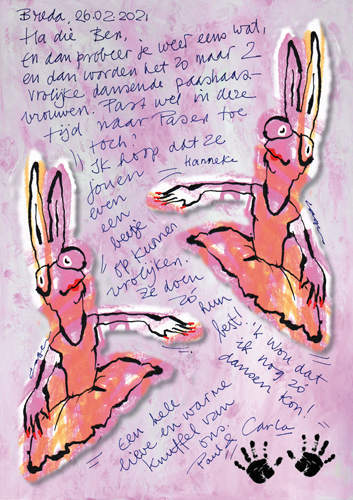 Breda, 26.02.2021
Ha die Ben,
En dan probeer je weer eens wat,
en dan worden het zo maar 2
vrolijke dansende paashaas-
vrouwen. Past wel in deze
tijd naar Pasen toe
toch!
Ik hoop dat ze
Hanneke
jouen
even
een
beetje
op kunnen
vrolijken.
Ze doen
zo
hun
best! ik wou dat
ik nog zó
dansen kon!
Een hele
lieve en warme
knuffel van
ons.
Paul & Carla